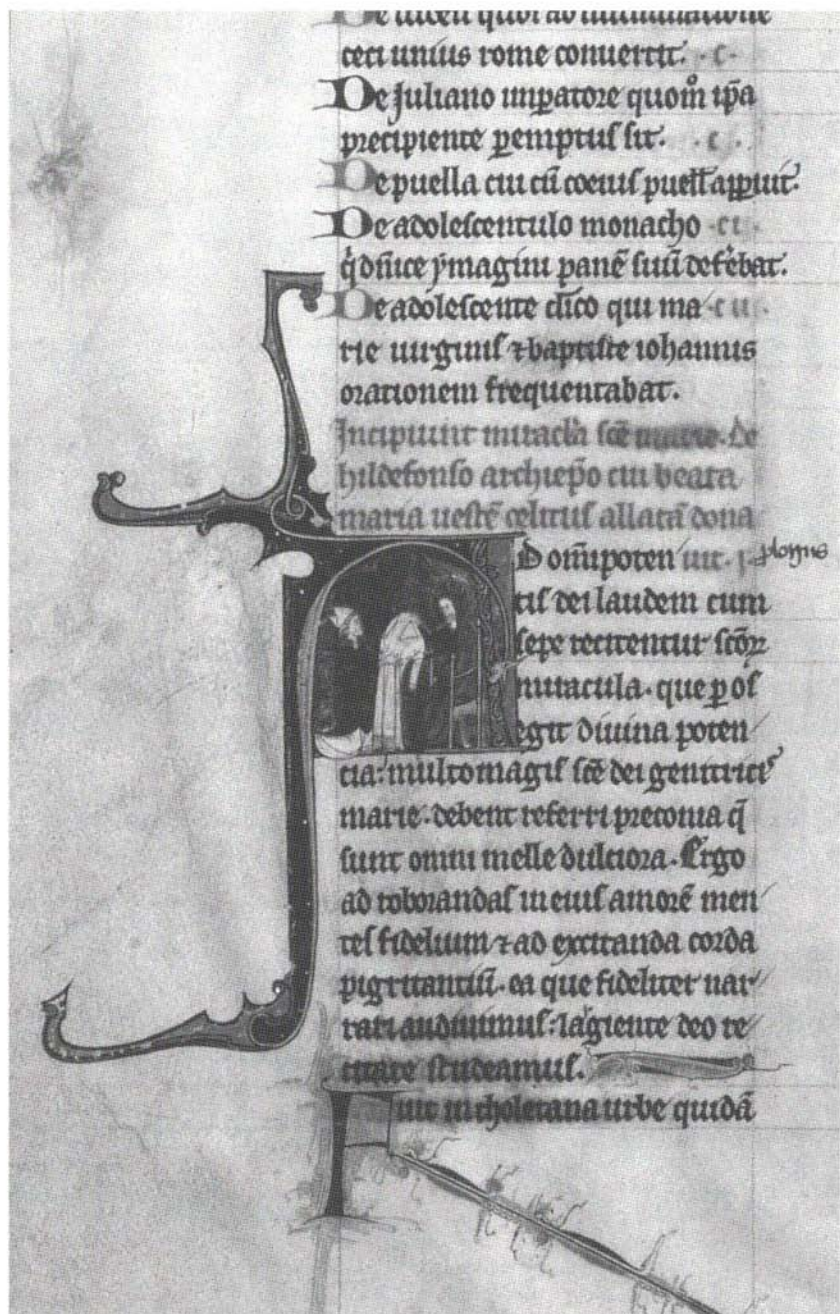 ceci unius rome conuertit. c.
De Juliano imperatore quom ipa
precipiente pemptus sit. c.
De puella cui cu cocius puell apparuit.
De adolescentulo monacho c i.
q dnice ymagini pane suu deferebat.
De adolescente clico qui ma c ii.
rie uirginis ⁊ baptiste iohannis
orationem frequentabat.
Incipiunt miracla sce marie. de
hildefonso archiepo cui beata
maria ueste celitus allata dona
D omnipoten uit. prologus
tis dei laudem cum
sepe recitentur scoꝝ
miracula. que p os
egit diuina poten
cia: multo magis sce dei genitricis
marie. debent referri preconia q̄
sunt omni melle dulciora. Ergo
ad roborandas in eius amorē men
tes fidelium ⁊ ad excitanda corda
pigritantiū. ea que fideliter nar
rari audiuimus: largiente deo re
citare studeamus.
Fuit in tholetana urbe quidā